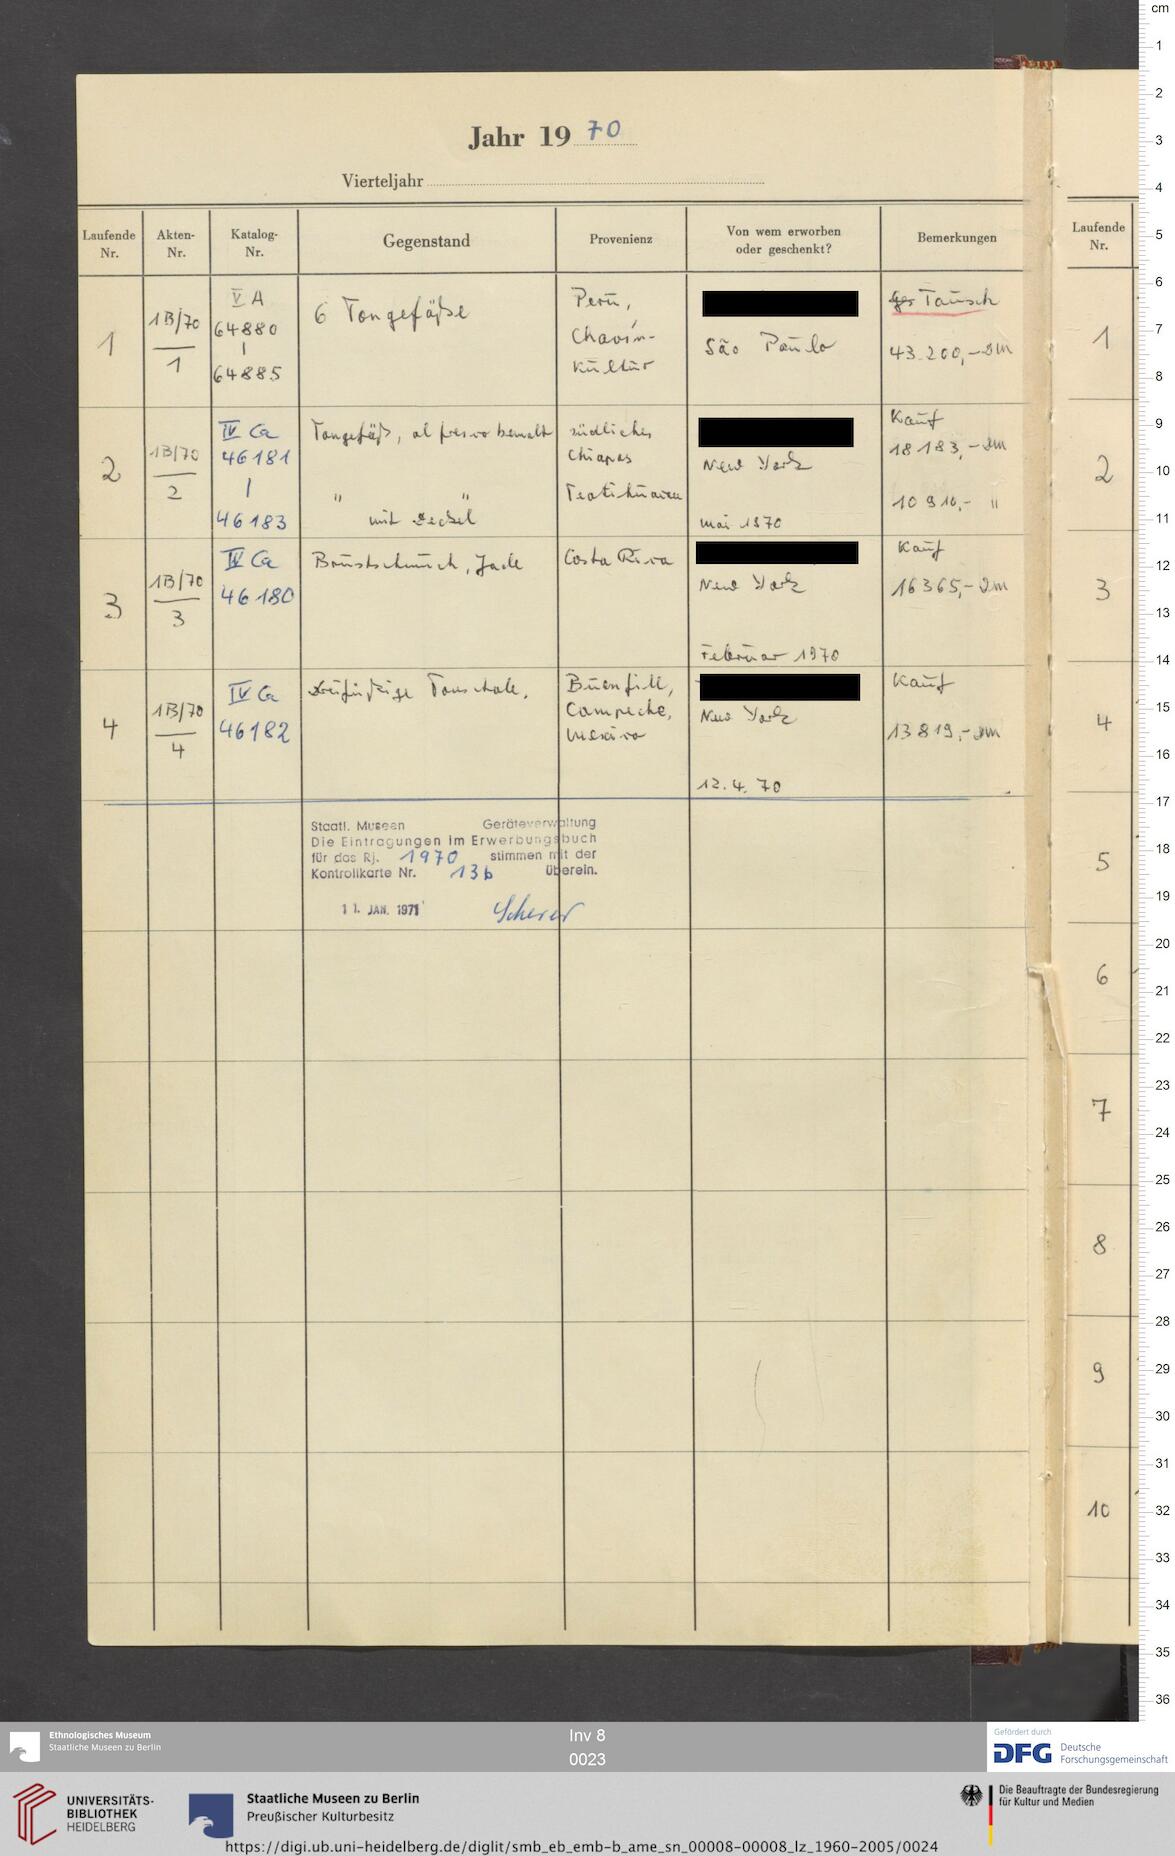 Jahr 19 70
Vierteljahr
Laufende Nr.
Akten-Nr.
Katalog-Nr.
Gegenstand
Provenienz
Von wem erworben oder geschenkt?
Bemerkungen
1
1B/70
1
V A
64880
|
64885
6 Tongefäße
Perú,
Chavín-
Kultur
São Paulo
Tausch
43.200,- DM
2
1B/70
2
IV Ca
46181
|
46183
Tongefäß, al fresco bemalt
" "
mit Deckel
südliches
Chiapas
Teotihuacan
New York
Mai 1970
Kauf
18183,- DM
10910,- "
3
1B/70
3
IV Ca
46180
Brustschmuck, Jade
Costa Rica
New York
Februar 1970
Kauf
16365,- DM
4
1B/70
4
IV Ca
46182
dreifüßige Tonschale,
Campeche,
Mexico
New York
12.4.70
Kauf
13819,- DM
Staatl. Museen Geräteverwaltung
Die Eintragungen im Erwerbungsbuch
für das Rj. 1970 stimmen mit der
Kontrollkarte Nr. 13b überein.
11. JAN. 1971 Scherer
Laufende
Nr.
1
2
3
4
5
6
7
8
9
10
cm
1
2
3
4
5
6
7
8
9
10
11
12
13
14
15
16
17
18
19
20
21
22
23
24
25
26
27
28
29
30
31
32
33
34
35
36
Ethnologisches Museum
Staatliche Museen zu Berlin
Inv 8
0023
Gefördert durch
DFG Deutsche
Forschungsgemeinschaft
UNIVERSITÄTS-
BIBLIOTHEK
HEIDELBERG
Staatliche Museen zu Berlin
Preußischer Kulturbesitz
Die Beauftragte der Bundesregierung
für Kultur und Medien
https://digi.ub.uni-heidelberg.de/diglit/smb_eb_emb-b_ame_sn_00008-00008_lz_1960-2005/0024